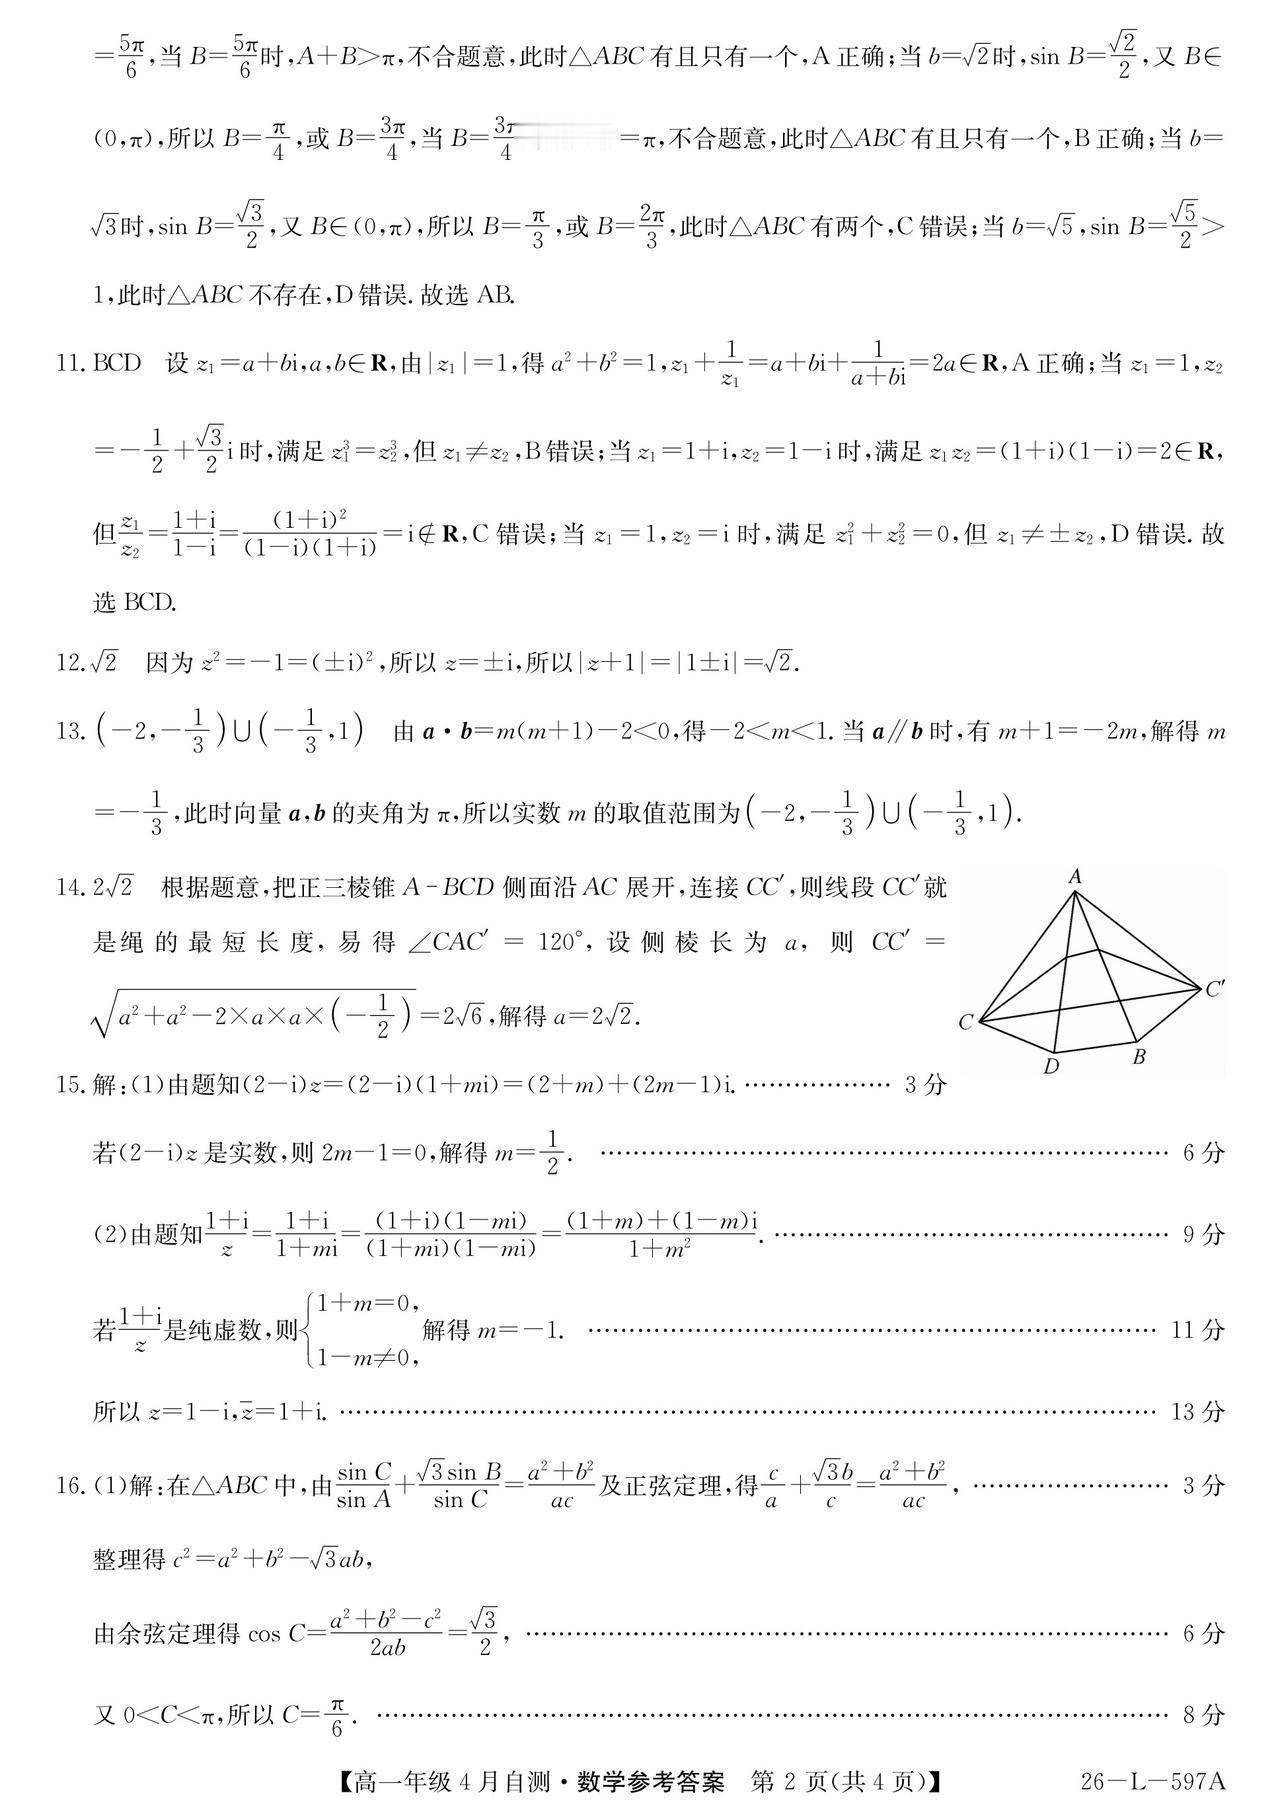 =5π/6,当 B=5π/6时,A+B>π,不合题意,此时△ABC 有且只有一个,A 正确;当 b=√2时,sin B=√2/2,又 B∈
(0,π),所以 B=π/4,或 B=3π/4,当 B=3π/4 =π,不合题意,此时△ABC 有且只有一个,B 正确;当 b=
√3时,sin B=√3/2,又 B∈(0,π),所以 B=π/3,或 B=2π/3,此时△ABC 有两个,C 错误;当 b=√5,sin B=√5/2>
1,此时△ABC 不存在,D 错误.故选 AB.
11. BCD 设 z₁=a+bi,a,b∈R,由|z₁|=1,得 a²+b²=1,z₁+1/z₁=a+bi+1/(a+bi)=2a∈R,A 正确;当 z₁=1,z₂
=-1/2+(√3/2)i 时,满足 z₁³=z₂³,但 z₁≠z₂,B 错误;当 z₁=1+i,z₂=1-i 时,满足 z₁z₂=(1+i)(1-i)=2∈R,
但z₁/z₂=(1+i)/(1-i)=(1+i)²/((1-i)(1+i))=i∉R,C 错误;当 z₁=1,z₂=i 时,满足 z₁²+z₂²=0,但 z₁≠±z₂,D 错误.故
选 BCD.
12. √2 因为 z²=-1=(±i)²,所以 z=±i,所以|z+1|=|1±i|=√2.
13. (-2,-1/3)∪(-1/3,1) 由 a·b=m(m+1)-2<0,得-2<m<1.当 a∥b 时,有 m+1=-2m,解得 m
=-1/3,此时向量 a,b 的夹角为 π,所以实数 m 的取值范围为(-2,-1/3)∪(-1/3,1).
14. 2√2 根据题意,把正三棱锥 A-BCD 侧面沿 AC 展开,连接 CC′,则线段 CC′就
是绳的最短长度,易得∠CAC′=120°,设侧棱长为 a,则 CC′=
√(a²+a²-2×a×a×(-1/2))=2√6,解得 a=2√2.
A
C′
C
B
D
15. 解:(1)由题知(2-i)z=(2-i)(1+mi)=(2+m)+(2m-1)i. ……………… 3 分
若(2-i)z 是实数,则 2m-1=0,解得 m=1/2. ……………… 6 分
(2)由题知(1+i)/z=(1+i)/(1+mi)=(1+i)(1-mi)/((1+mi)(1-mi))=((1+m)+(1-m)i)/(1+m²). ……………… 9 分
若(1+i)/z是纯虚数,则{1+m=0, 1-m≠0, 解得 m=-1. ……………… 11 分
所以 z=1-i,z̄=1+i. ……………… 13 分
16. (1)解:在△ABC 中,由sin C/sin A+√3sin B/sin C=(a²+b²)/ac及正弦定理,得c/a+√3b/c=(a²+b²)/ac, ……………… 3 分
整理得 c²=a²+b²-√3ab,
由余弦定理得 cos C=(a²+b²-c²)/2ab=√3/2, ……………… 6 分
又 0<C<π,所以 C=π/6. ……………… 8 分
【高一年级 4 月自测·数学参考答案 第 2 页(共 4 页)】 26-L-597A